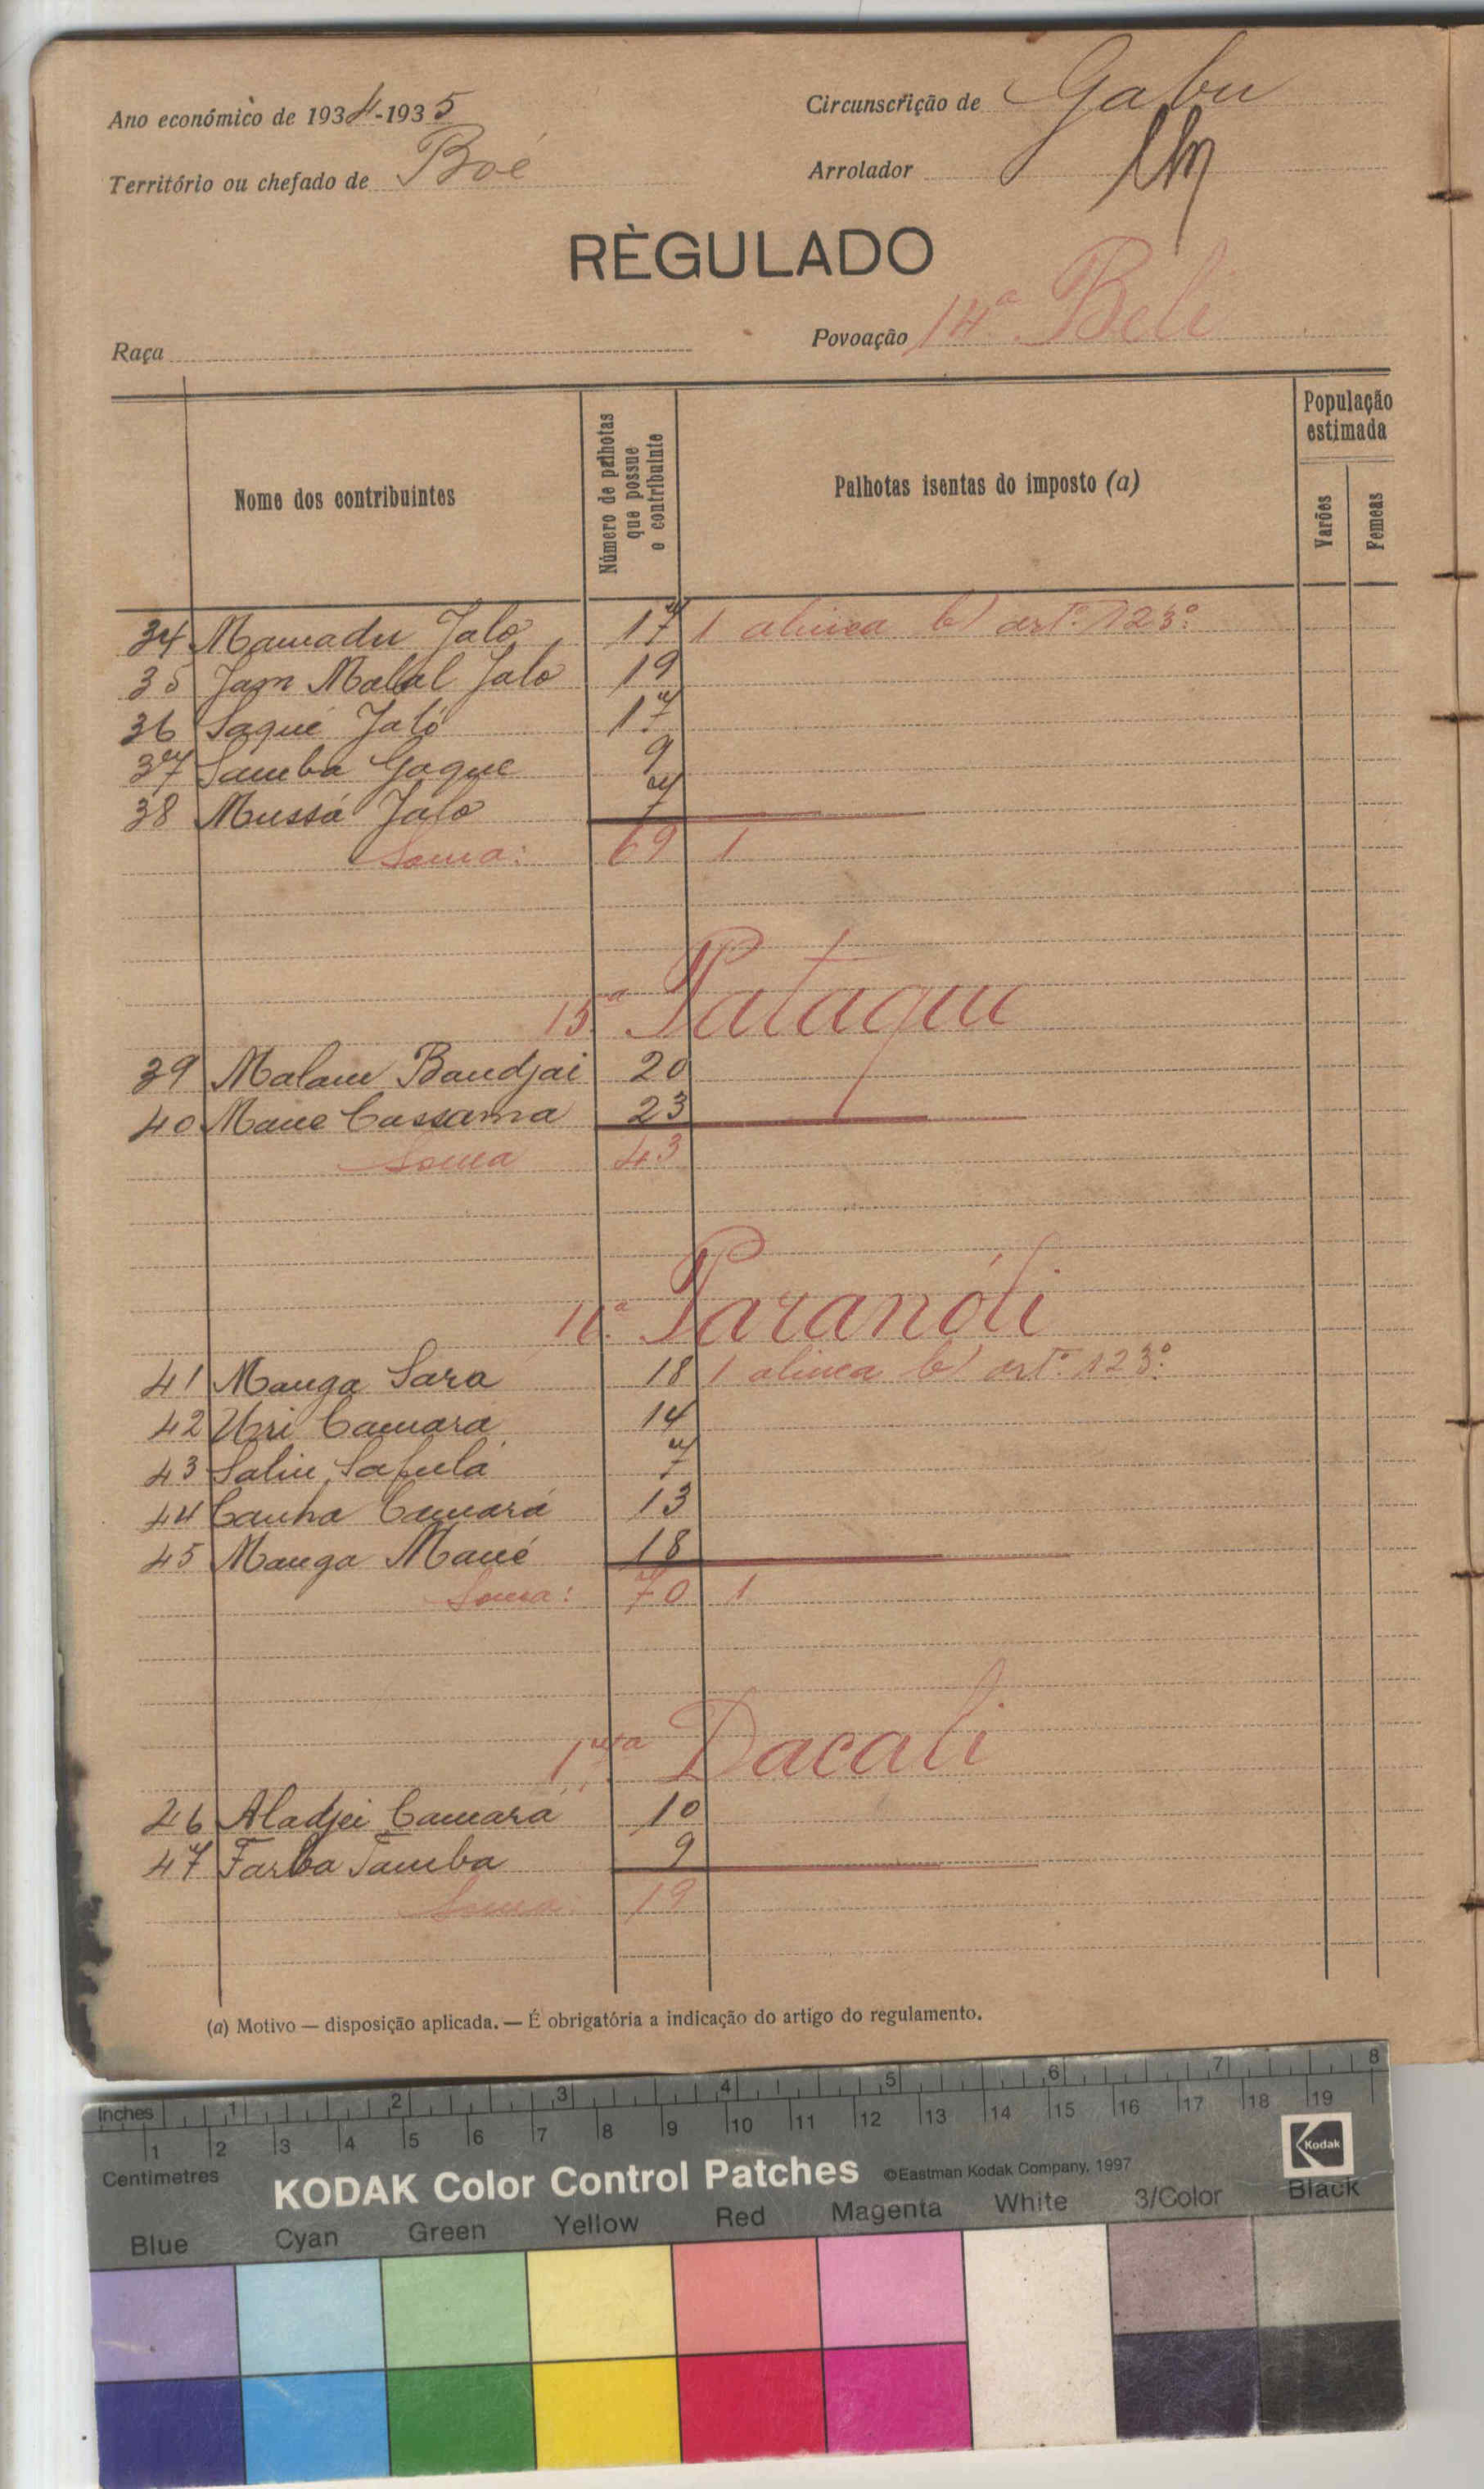 Ano económico de 1934-1935
Circunscrição de Gabu
Território ou chefado de Boé
Arrolador
RÈGULADO
Raça
Povoação 14ª Beli
Nome dos contribuintes
Número de palhotas que possue o contribuinte
Palhotas isentas do imposto (a)
População estimada
Varões
Femeas
34 Mamadu Jalo 17 1 alinea b) artº 123º
35 Jam Malal Jalo 19
36 Saqué Jaló 17
37 Samba Gaque 9
38 Mussá Jalo 7
Soma: 69 1
15ª Pataque
39 Malam Bandjai 20
40 Mane Cassama 23
Soma 43
16ª Paranóli
41 Manga Sara 18 1 alinea b) artº 123º
42 Uri Camará 14
43 Saliu Safulá 7
44 Canha Camará 13
45 Manga Mané 18
Soma: 70 1
17ª Dacali
46 Aladjei Camará 10
47 Farba Tamba 9
Soma: 19
(a) Motivo — disposição aplicada. — É obrigatória a indicação do artigo do regulamento.
Inches 1 2 3 4 5 6 7 8
1 2 3 4 5 6 7 8 9 10 11 12 13 14 15 16 17 18 19
Centimetres
KODAK Color Control Patches ©Eastman Kodak Company, 1997
Kodak
Blue Cyan Green Yellow Red Magenta White 3/Color Black